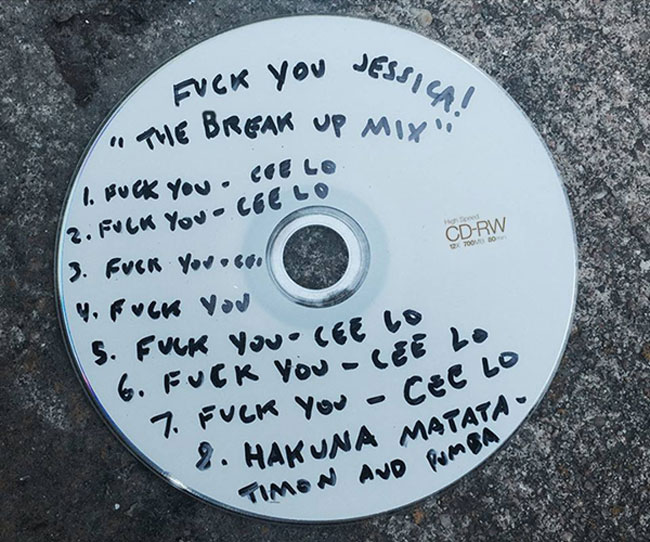 FUCK YOU JESSICA!
"THE BREAK UP MIX"
1. FUCK YOU - CEE LO
2. FUCK YOU - CEE LO
3. FUCK YOU - CEE
4. FUCK YOU
5. FUCK YOU - CEE LO
6. FUCK YOU - CEE LO
7. FUCK YOU - CEE LO
8. HAKUNA MATATA -
TIMON AND PUMBA
High Speed
CD-RW
12X 700MB 80min